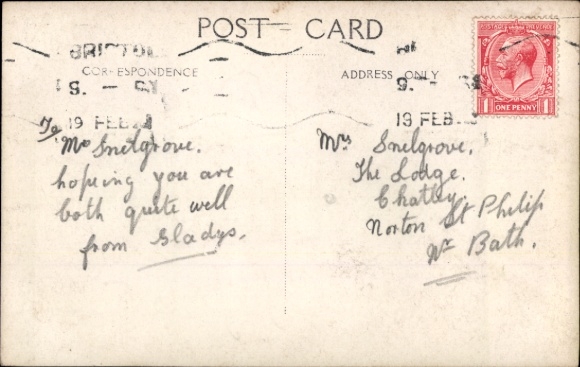 POST CARD
BRISTOL
CORRESPONDENCE
ADDRESS ONLY
19 FEB
19 FEB
POSTAGE REVENUE
1 ONE PENNY 1
To
Mrs Snelgrove.
hoping you are
both quite well
from Gladys.
Mrs Snelgrove.
The Lodge.
Chatley.
Norton St Philip
Nr Bath.